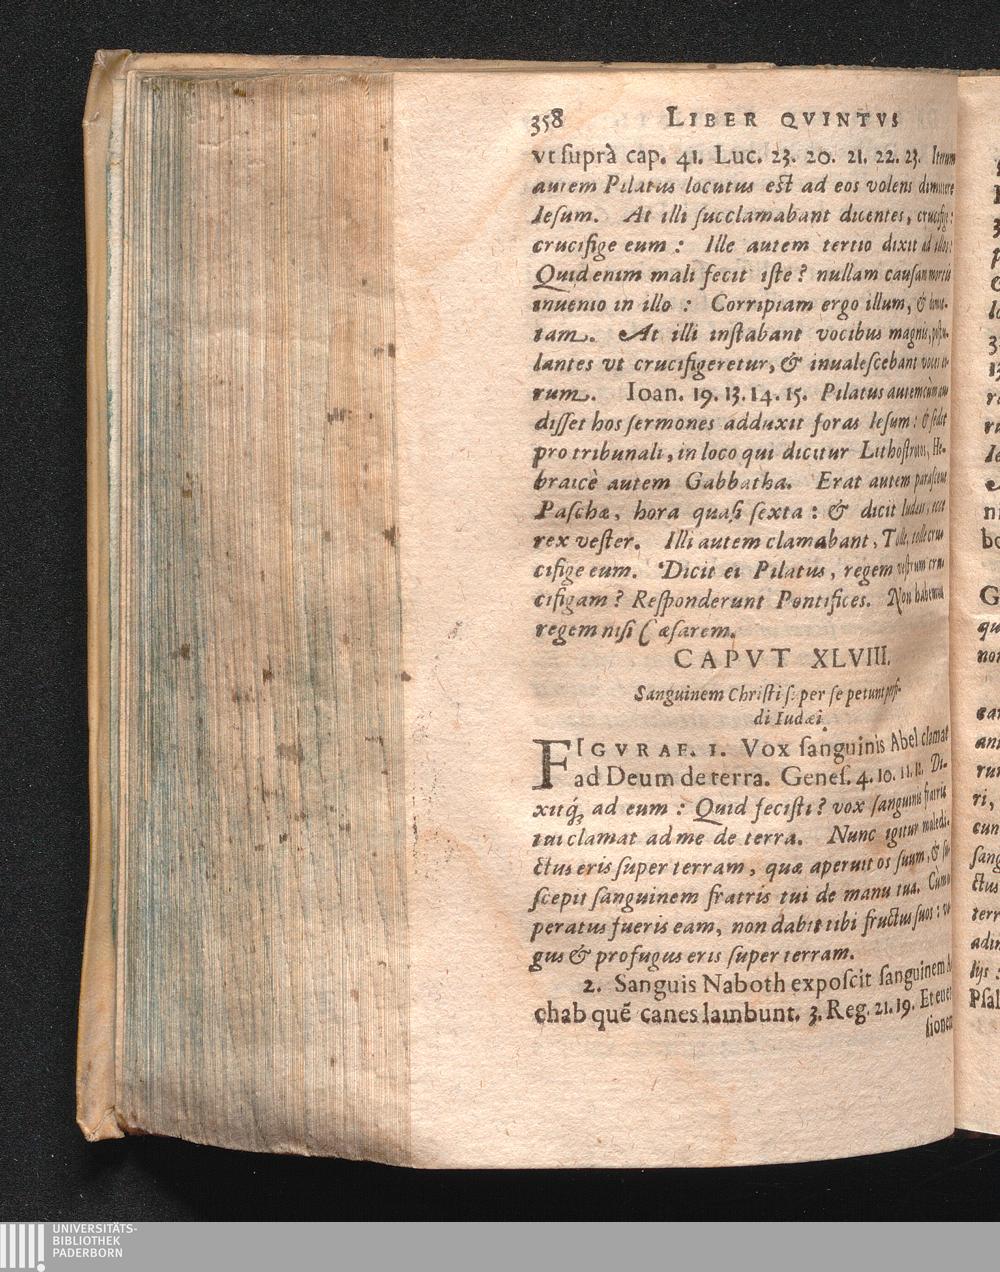 358 LIBER QVINTVS
vt ſuprà cap. 41. Luc. 23. 20. 21. 22. 23. Iterum
autem Pilatus locutus est ad eos volens dimittere
Ieſum. At illi ſucclamabant dicentes, crucifige:
crucifige eum: Ille autem tertio dixit ad illos:
Quid enim mali fecit iſte? nullam cauſam mortis
inuenio in illo: Corripiam ergo illum, & dimit-
tam. At illi inſtabant vocibus magnis, poſtu-
lantes vt crucifigeretur, & inualeſcebant voces eo-
rum. Ioan. 19. 13. 14. 15. Pilatus autem cùm au-
diſſet hos ſermones adduxit foras Ieſum: & ſedit
pro tribunali, in loco qui dicitur Lithoſtrotos, He-
braicè autem Gabbatha. Erat autem paraſceue
Paſchæ, hora quaſi ſexta: & dicit Iudæis, ecce
rex veſter. Illi autem clamabant, Tolle, tolle cru-
cifige eum. Dicit ei Pilatus, regem veſtrum cru-
cifigam? Reſponderunt Pontifices. Non habemus
regem niſi Cæſarem.
CAPVT XLVIII.
Sanguinem Chriſti ſuper ſe petunt perfi-
di Iudæi
FIGVRAE. 1. Vox ſanguinis Abel clamat
ad Deum de terra. Geneſ. 4. 10. 11. 12. Di-
xitq́; ad eum: Quid feciſti? vox ſanguinis fratris
tui clamat ad me de terra. Nunc igitur maledi-
ctus eris ſuper terram, quæ aperuit os ſuum, & ſu-
ſcepit ſanguinem fratris tui de manu tua. Cùm o-
peratus fueris eam, non dabit tibi fructus ſuos: va-
gus & profugus eris ſuper terram.
2. Sanguis Naboth expoſcit ſanguinem A-
chab quē canes lambunt. 3. Reg. 21. 19. Et euer-
ſionem
G
Pſal
UNIVERSITÄTS-
BIBLIOTHEK
PADERBORN